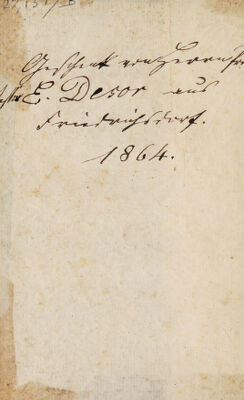 Geschenk von Herrn
E. Desor aus
Friedrichsdorf.
1864.